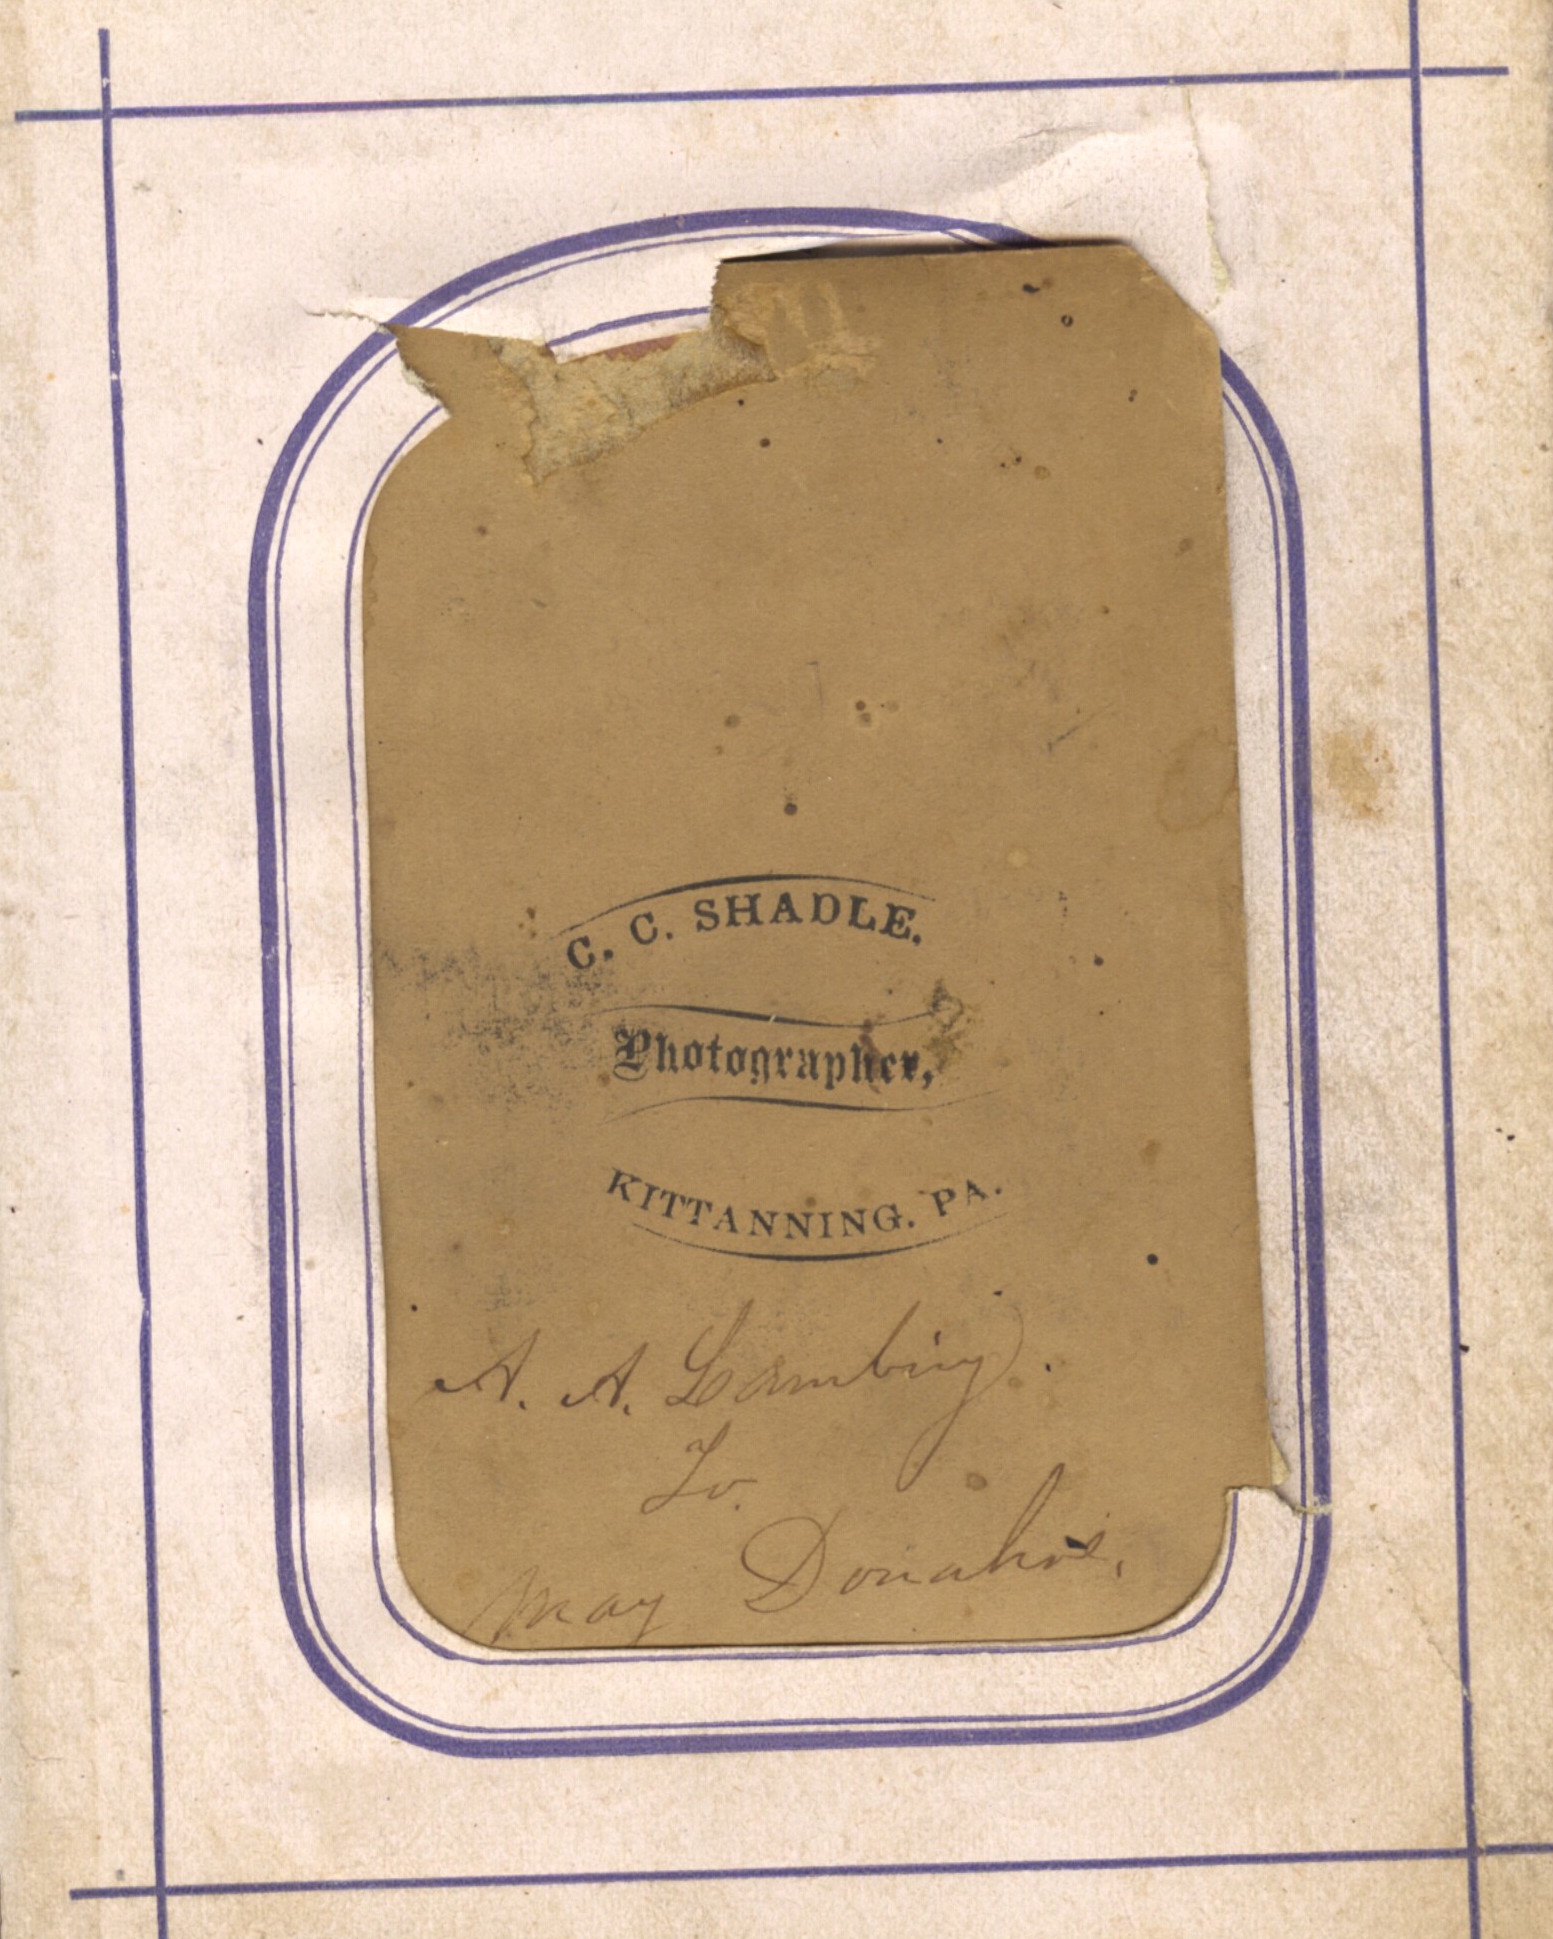 C. C. SHADLE.
Photographer,
KITTANNING. PA.
A. A. Lambing.
To.
May Donahoe,